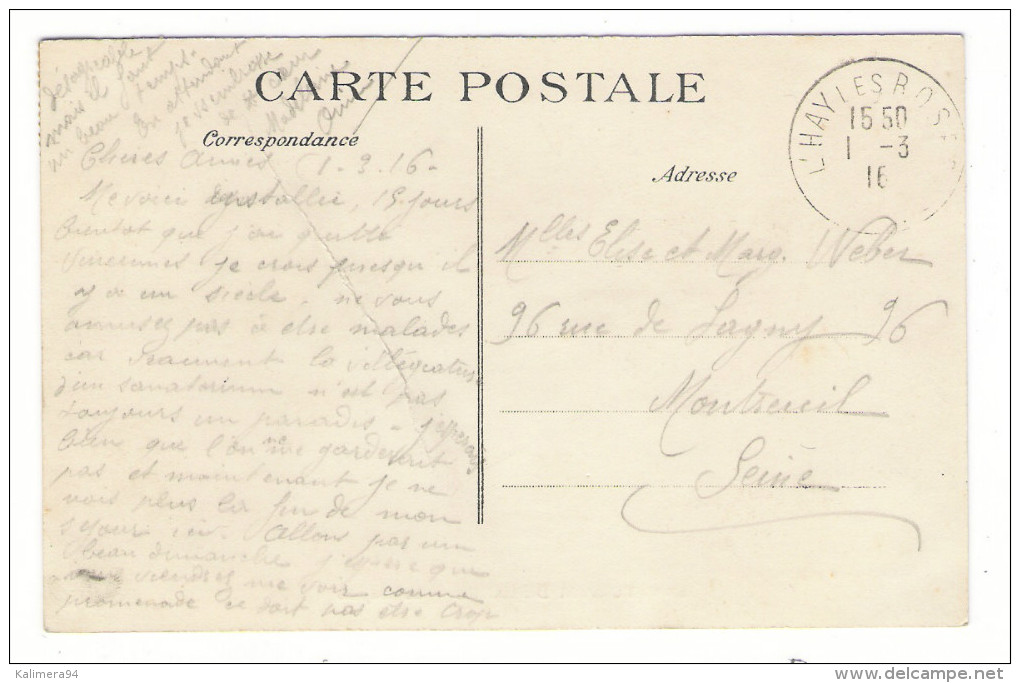 CARTE POSTALE
Correspondance
Adresse
L'HAY LES ROSES
15 50
1 -3
16
Chères Amies 1-3.16-
Me voici installée, 15 jours
bientot que j'ai quitté
Vincennes je crois presqu'il
y a un siècle. ne vous
amusez pas à être malades
car vraiment la villégiature
d'un sanatorium n'est pas
toujours un paradis - j'esperais
bien que l'on ne me garderait
pas et maintenant je ne
vois plus la fin de mon
séjour ici. Allons par un
beau dimanche j'espère que
vous viendrez me voir comme
promenade ce doit pas etre trop
désagréable
mais il faut
un beau temps.
En attendant
je vous embrasse
de
Mlles Elise et Marg. Weber
96 rue de Lagny 96
Montreuil
Seine
Kalimera94
www.delcampe.net